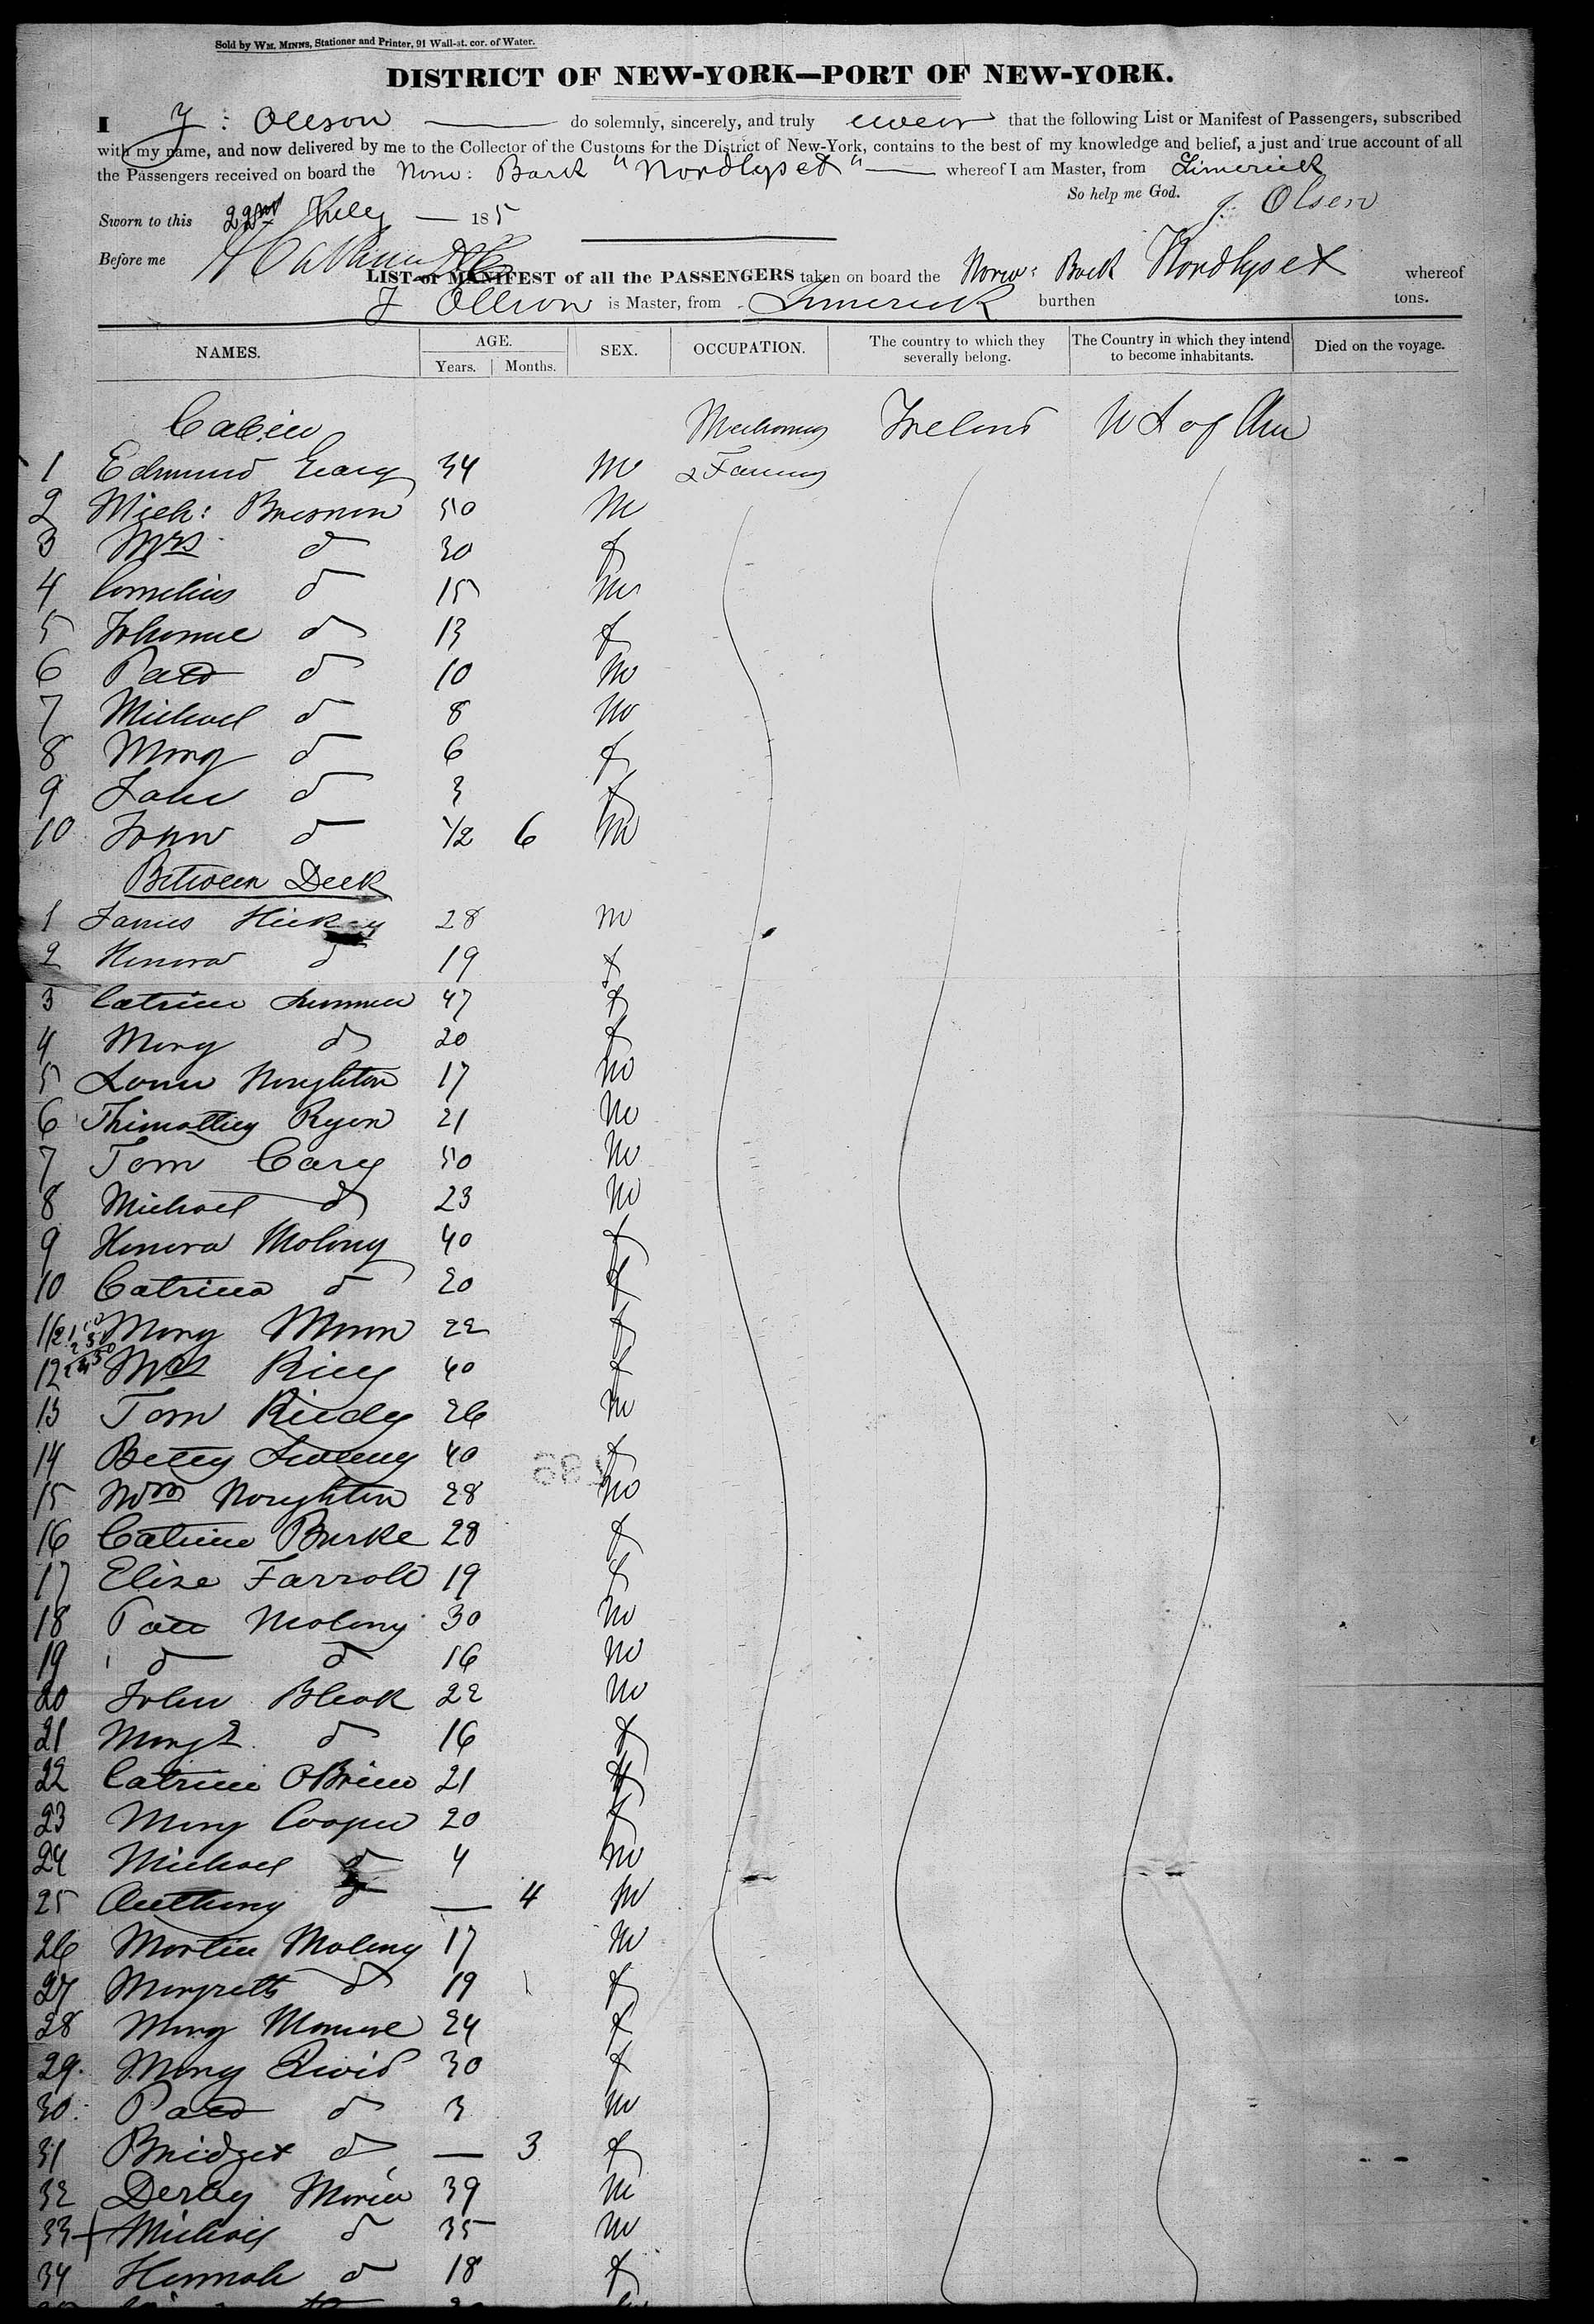 Sold by WM. MINNS, Stationer and Printer, 91 Wall-st. cor. of Water.
DISTRICT OF NEW-YORK—PORT OF NEW-YORK.
I J: Olleson do solemnly, sincerely, and truly swear that the following List or Manifest of Passengers, subscribed
with my name, and now delivered by me to the Collector of the Customs for the District of New-York, contains to the best of my knowledge and belief, a just and true account of all
the Passengers received on board the Norw: Bark "Nordlyset" whereof I am Master, from Limerick
So help me God.
J. Olsen
Sworn to this 22nd July 185
Before me
LIST or MANIFEST of all the PASSENGERS taken on board the Norw: Bark Nordlyset whereof
J Olleson is Master, from Limerick burthen tons.
NAMES. AGE. Years. Months. SEX. OCCUPATION. The country to which they severally belong. The Country in which they intend to become inhabitants. Died on the voyage.
Cabin Ireland of Am
1 Edmund Geary 34 m & Farmers
2 Mich: Bresnen 50 m
3 Mrs d 30 f
4 Cornelius d 15 m
5 Johanne d 13 f
6 Patt d 10 m
7 Michael d 8 m
8 Mary d 6 f
9 d 3 f
10 John d 1/2 6 m
Between Deck
1 James Hickey 28 m
2 Honora d 19 f
3 Catrine 47 f
4 Mary d 20 f
5 Noughton 17 m
6 Thimothey Ryan 21 m
7 Tom Carey 50 m
8 Michael d 23 m
9 Honora Molony 40 f
10 Catrina d 20 f
11 Mary 22 f
12 Mrs 40 f
13 Tom Riedy 26 m
14 Betty 40 f
15 Wm Noughton 28 m
16 Catrine Burke 28 f
17 Elise Farroll 19 f
18 Patt Molony 30 m
19 d d 16 m
20 John Bleak 22 m
21 Margt d 16 f
22 Catrine OBrien 21 f
23 Mary Cooper 20 f
24 Michael d 4 m
25 Anthony d — 4 m
26 Martin Molony 17 m
27 Margrett d 19 f
28 Mary 24 f
29. Mary 30 f
30. Patt d 3 m
31 Bridget d — 3 f
32 Derby 39 m
33 Michael d 35 m
34 Hannah d 18 f